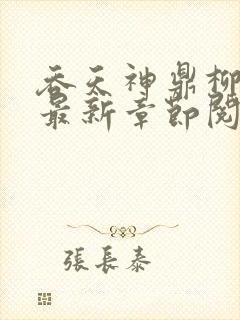 吞天神鼎柳
最新章節閱
張長泰